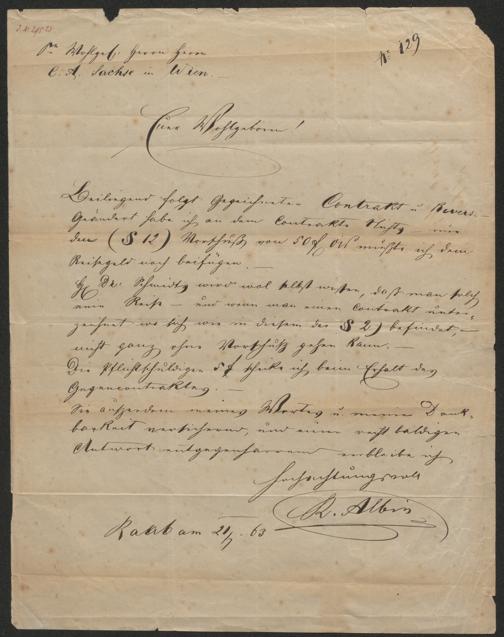 No 129
Sr Wohlgeb. Herrn Herrn
C. A. Sachse in Wien.
Euer Wohlgeboren!
Beiliegend folgt gezeichneter Contrakt u Revers.
Geändert habe ich an dem Contrakte Nichts – nur
den (§ 12) Vorschuß von 50 f ÖW müßte ich dem
Reisegeld noch beifügen. —
H Dr. Schmidt wird wol selbst wissen, daß man solch
eine Reise – und wenn man einen Contrakt unter-
zeichnet wo sich wie in diesem der § 2) befindet, –
nicht ganz ohne Vorschuß gehen kann. —
Die Pflichtschuldigen 5 f schicke ich beim Erhalt des
Gegencontraktes. —
Sie außerdem meines Wortes u. meiner Dank-
barkeit versichernd, und einer recht baldigen
Antwort entgegenharrend verbleibe ich
hochachtungsvoll
R. Albin
Raab am 21/. 63